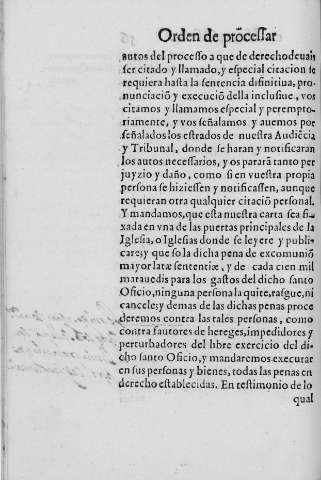 Orden de prõcessar
autos del processo a que de derecho deuais
ser citado y llamado, y especial citacion se
requiera hasta la sentencia difinitiua, pro-
nunciació y execució della inclusiue, vos
citamos y llamamos especial y perempto-
riamente, y vos señalamos y auemos por
señalados los estrados de nuestra Audiẽcia
y Tribunal, donde se haran y notificaran
los autos necessarios, y os pararã tanto per
juyzio y daño, como si en vuestra propia
persona se hiziessen y notificassen, aunque
requieran otra qualquier citaciõ personal.
Y mandamos, que esta nuestra carta sea fi-
xada en vna de las puertas principales de la
Iglesia, o Iglesias donde se leyere y publi-
care; y que so la dicha pena de excomuniõ
mayor latæ sententiæ, y de cada cien mil
marauedis para los gastos del dicho santo
Oficio, ninguna persona la quite, rasgue, ni
cancele; y demas de las dichas penas proce
deremos contra las tales personas, como
contra fautores de hereges, impedidores y
perturbadores del libre exercicio del di-
cho santo Oficio, y mandaremos executar
en sus personas y bienes, todas las penas en
derecho establecidas. En testimonio de lo
qual